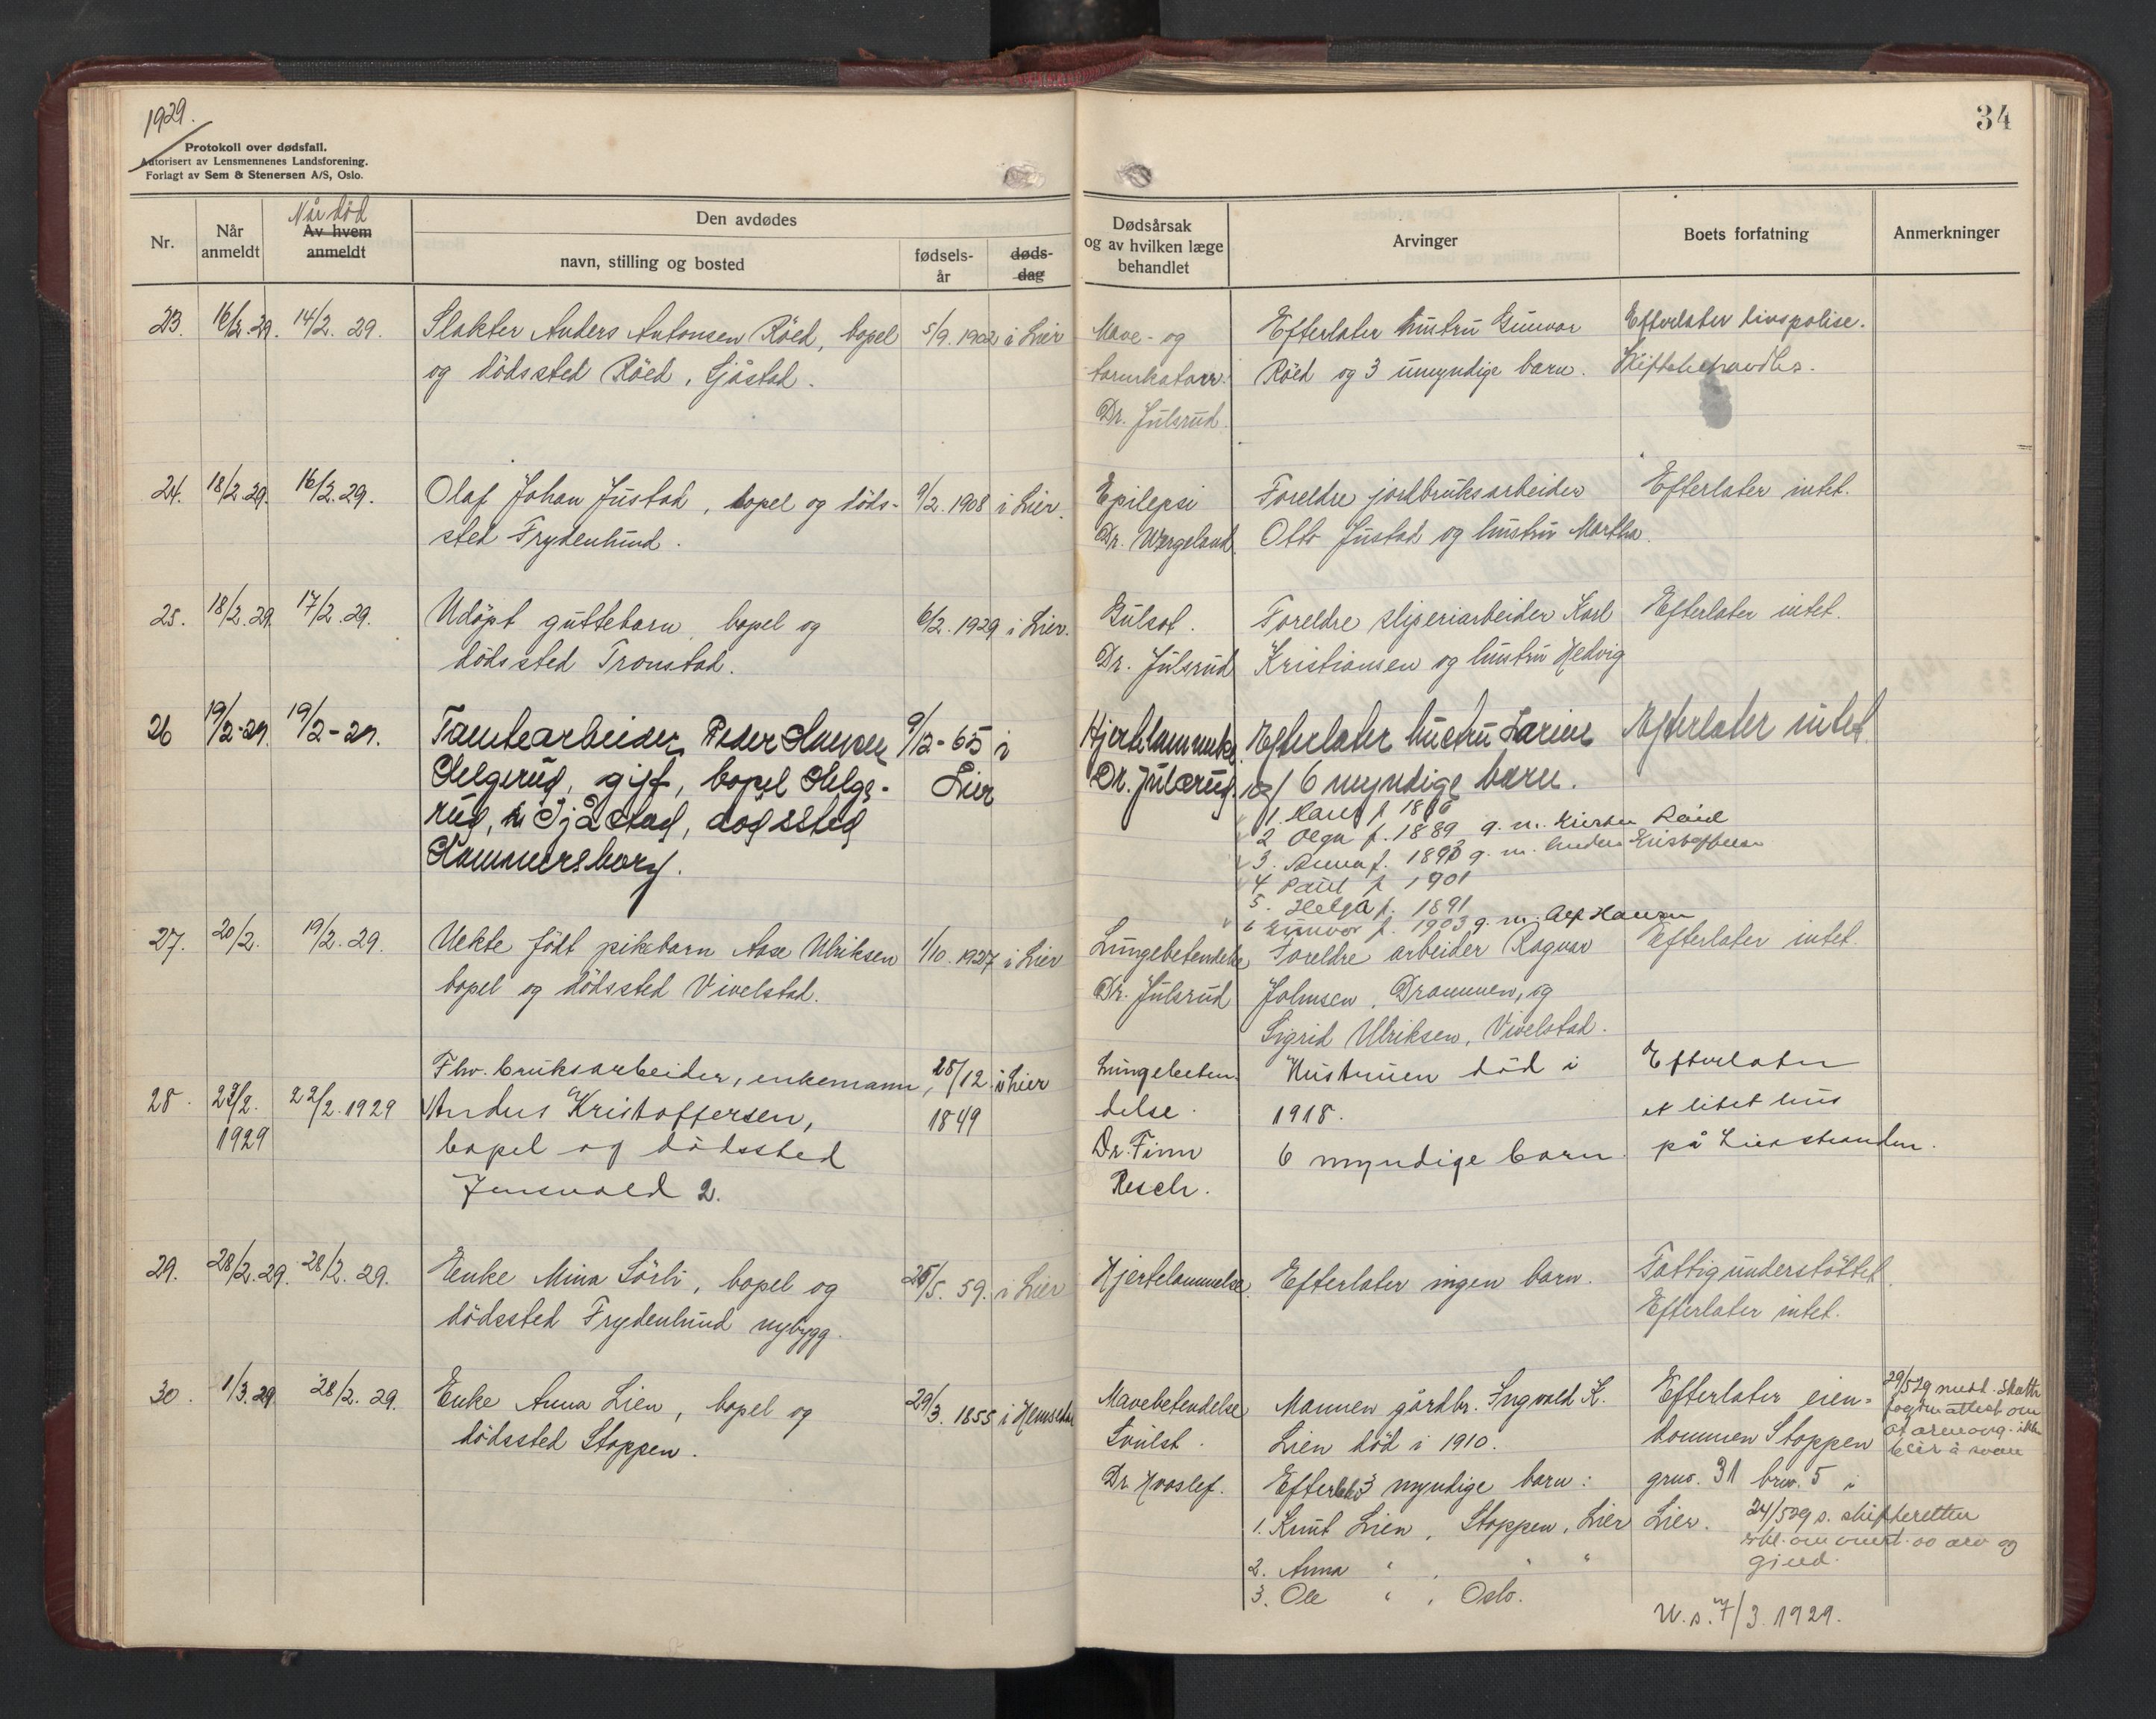 1929.
34
Protokoll over dødsfall.
Autorisert av Lensmennenes Landsforening.
Forlagt av Sem & Stenersen A/S, Oslo.
Nr.
Når anmeldt
Når död
Av hvem anmeldt
Den avdødes
navn, stilling og bosted
fødsels-
år
døds-
dag
Dødsårsak
og av hvilken læge
behandlet
Arvinger
Boets forfatning
Anmerkninger
23. 16/2.29. 14/2. 29. Slakter Anders Antonsen Röed, bopel 5/9. 1902 i Lier
og dödssted Röed, Sjåstad.
Mave- og
tarmkatarr.
Dr. Julsrud.
Efterlater hustru Gunvor
Röed og 3 umyndige barn.
Efterlater livspolise.
Skiftebehandles.
24. 18/2.29. 16/2.29. Olaf Johan Justad, bopel og döds- 9/2. 1908 i Lier.
sted Frydenlund.
Epilepsi
Dr. Wergeland
Foreldre jordbruksarbeider
Otto Justad og hustru Martha.
Efterlater intet.
25. 18/2.29. 17/2.29. Udöpt guttebarn, bopel og 6/2. 1929 i Lier.
dödssted Tronstad.
Gulsot.
Dr. Julsrud
Foreldre sliperiarbeider Karl
Kristiansen og hustru Hedvig
Efterlater intet.
26 19/2-29. 19/2-29. Tomtearbeider Peder Hansen 9/12-65 i
Helgerud, gift, bopel Helge- Lier
rud, Sjåstad, dödssted
Hammersborg.
Hjertelammelse.
Dr. Julsrud.
Efterlater hustru Larine
og 6 myndige barn.
1. f. 1886
2 Olga f. 1889 g. m.
3. Anna f. 1893 g. m. Anders Kristoffersen
4. Paul f. 1901
5. Helga f. 1891
6 Gunvor f. 1903 g. m. Alf Hansen
Efterlater intet.
27. 20/2. 19/2.29. Uekte födt pikebarn Aase Ulriksen 1/10. 1927 i Lier
bopel og dödssted Vivelstad.
Lungebetendelse
Dr. Julsrud
Foreldre arbeider Ragnar
Johnsen, Drammen, og
Sigrid Ulriksen, Vivelstad.
Efterlater intet.
28. 23/2. 1929 22/2.1929 Fhv. bruksarbeider, enkemann, 28/12. 1849 i Lier
Anders Kristoffersen,
bopel og dödssted
Jensvold 2.
Lungebeten-
delse.
Dr. Finn
Resch.
Hustruen död i
1918.
6 myndige barn.
Efterlater
et litet hus
på Lierstranden.
29. 28/2.29. 28/2. 29. Enke Mina Sörli, bopel og 25/5. 59. i Lier
dödssted Frydenlund nybygg.
Hjertelammelse.
Efterlater ingen barn.
Fattigunderstöttet.
Efterlater intet.
30. 1/3.29. 28/2. 29. Enke Anna Lien, bopel og 29/3. 1855 i Hemsedal
dödssted Stoppen.
Mavebetendelse
Svulst.
Dr. Hvoslef.
Mannen gårdbr. Ingvald K.
Lien död i 1910.
Efterlot 3 myndige barn:
1. Knut Lien, Stoppen, Lier
2. Anna " , " "
3. Ole " , Oslo.
Efterlater eien-
dommen Stoppen
gnr. 31 brnr. 5 i
Lier.
29/5 29 mott. skatte
fogdens attest om
at arveavg. ikke
blir å svare
24/5 29 s. skifteretten
erkl. om overt. av arv og
gjeld.
U.s. 7/3 1929.